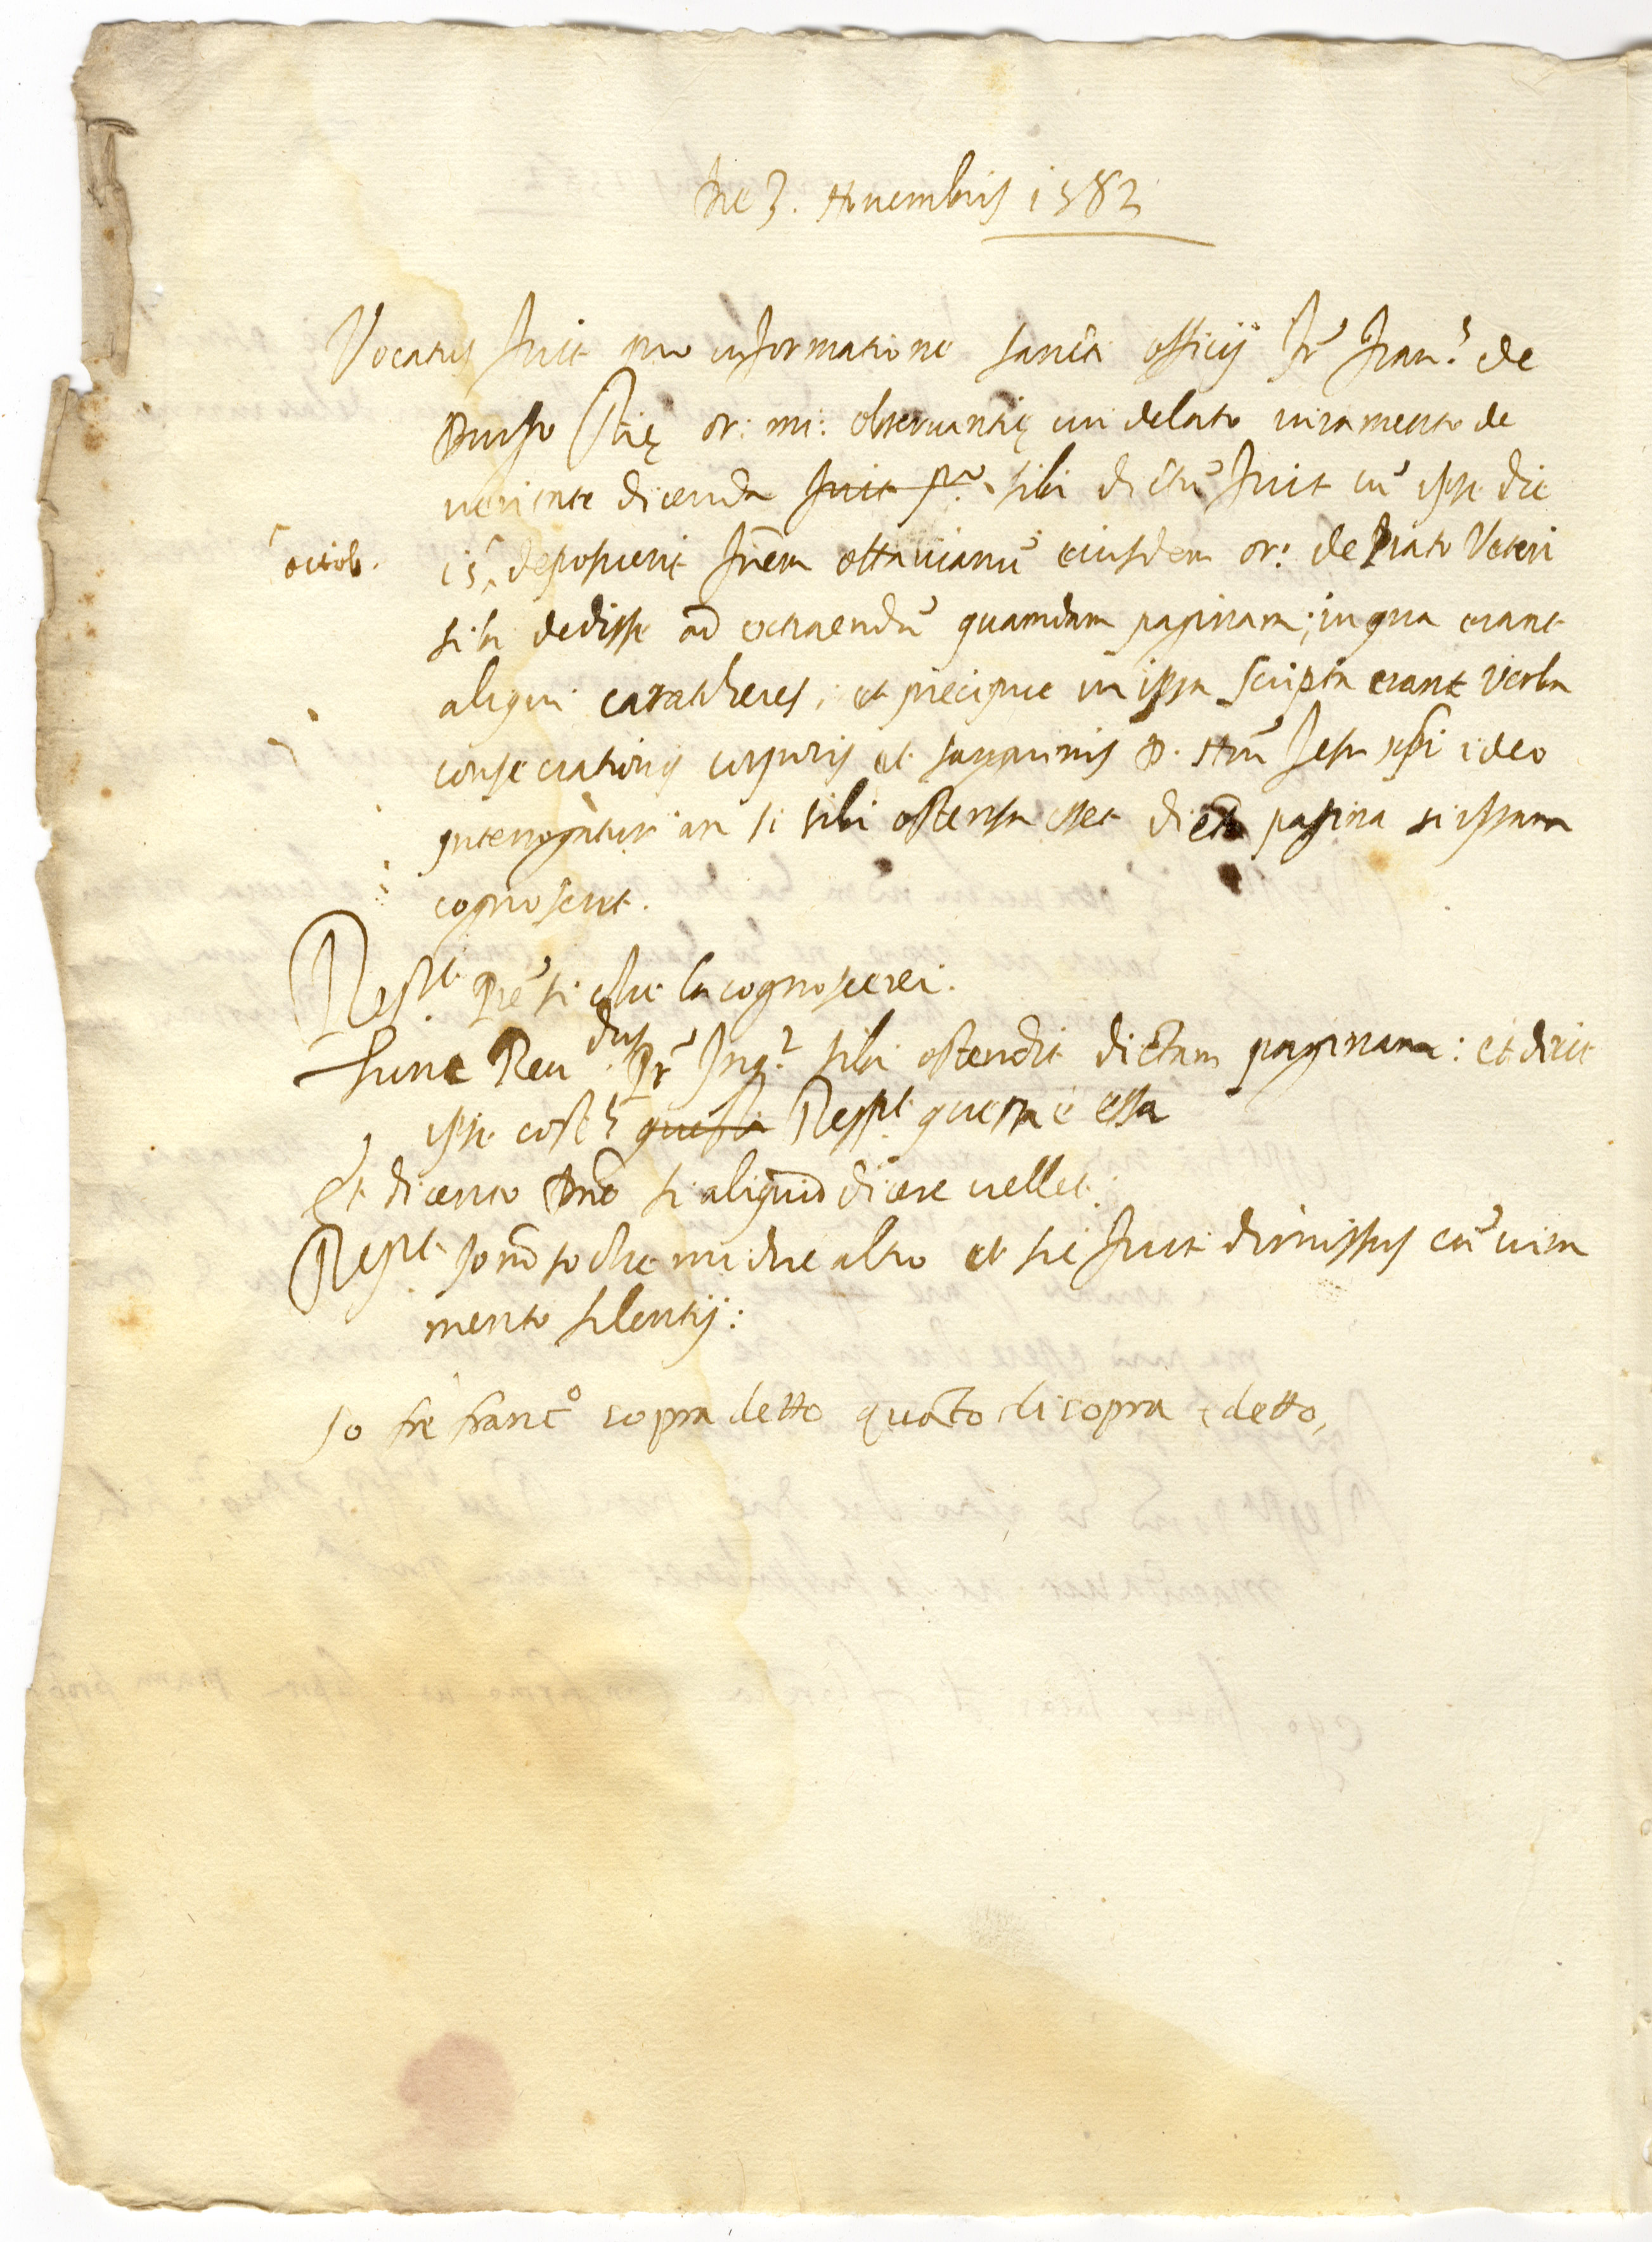 Die 3. Novembris 1582
Vocatus fuit pro informatione sancti officij fr̃ Fran.s de
Burgo orᵢ: mi: observantię cui delato iuramento de
veritate dicenda fuit sibi dictũ fuit cũ ipse die
octob.
15 deposuerit frẽm ottavianũ eiusdem or: de Prato Veteri
sibi dedisse ad extraendũ quamdam paginam; in qua erant
aliqui caratheres, et precipue in ipsa scripta erant verba
consecrationis corporis et sanguinis D. Nrĩ Jesu xp̃i ideo
interrogatur an si sibi ostensa esset dicta pagina si ipsam
cognoscat.
Respt. Prẽ si che la cognoscerei.
Tunc Reudus Pr Inq.r sibi ostendit dictam paginam: et dixit
ipse cost. questa Respt. questa è essa
Et dicente Dnõ si aliquid dicere vellet.
Respt. Io nõ so che mi dire altro et sic fuit dimissus cũ iura
mento silentij:
Io frẽ Franc.o sopra detto quãto di sopra è detto,